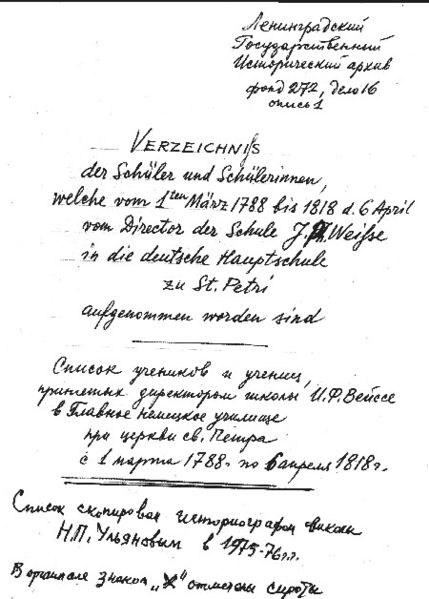 Ленинградский
Государственный
Исторический архив
фонд 272, дело 16
опись 1
VERZEICHNIS
der Schüler und Schülerinnen,
welche vom 1ten März 1788 bis 1818 d. 6 April
vom Director der Schule J. Ph. Weiße
in die deutsche Hauptschule
zu St. Petri
aufgenommen worden sind
Список учеников и учениц,
принятых директором школы И.Ф. Вейссе
в Главное немецкое училище
при церкви св. Петра
с 1 марта 1788 г. по 6 апреля 1818 г.
Список скопирован историографом школы
Н.П. Ульяновым в 1975-76 г.г.
В оригинале знаком „X“ отмечены сироты